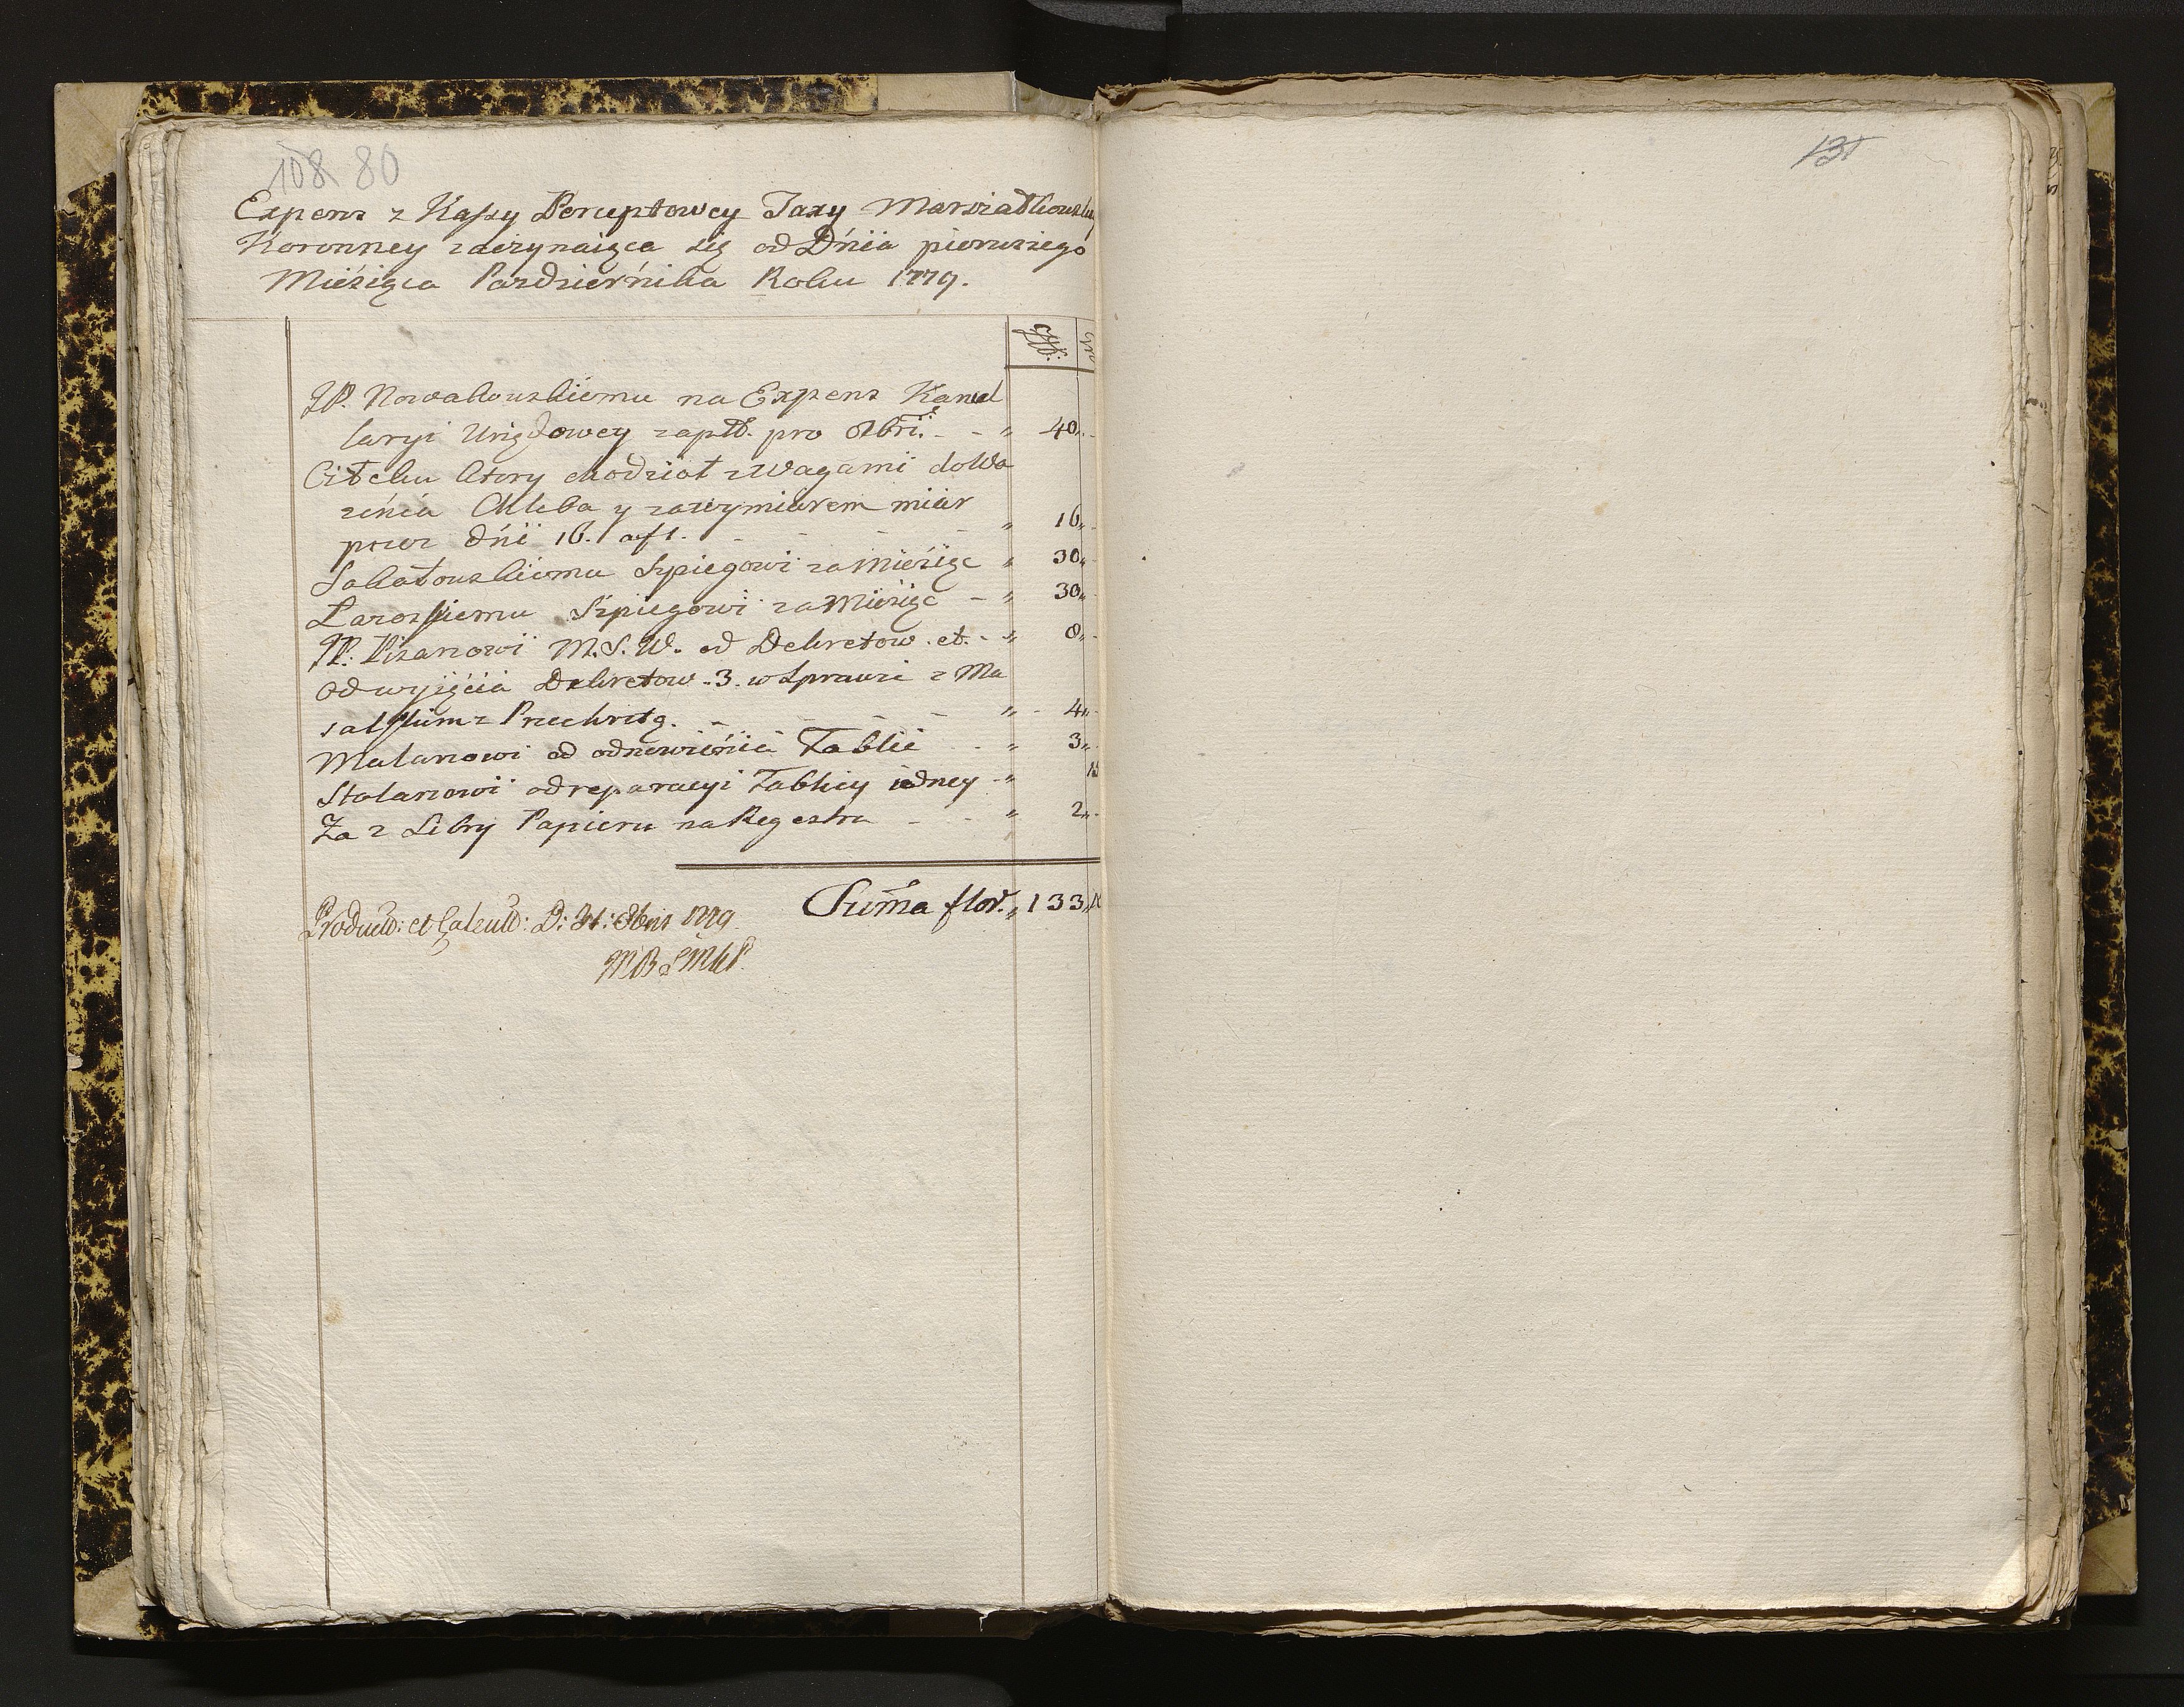 108 80
Expens z Kassy Perceptowey Taxy Marszałkowskiey
Koronney zaczynaiąca się od Dnia pierwszego
Miesiąca Pazdziernika Roku 1779.
JP. Nowakowskiemu na Expens Kancel
laryi Urzędowey zapł. pro 8bri. - - " 40 " -
Ciżelu ktory chodził z Wagami do Wa
żenia Chleba y za wymiarem miar
przez dni 16. a f 1. - - - - " 16 " -
Sakatowskiemu Szpiegowi za Miesiąc " 30 " -
Szpiegowi za Miesiąc - " 30 " -
JP. Pisarzowi M. S. W. od Dekretow. et. - " 8 " -
Od wyięcia Dekretow. 3. w Sprawie z Ma
z Przechrztą. - - - - " - 4 " -
Malarzowi od odnowienia Tablic - - " 3 " -
Stolarzowi od reparacyi Tablicy iedney - "
Za 2 Libry Papieru na Regestra - - " 2 " -
Suma flor. " 133 "
Product: et Calculd: D: 31: 8bris 1779.
131